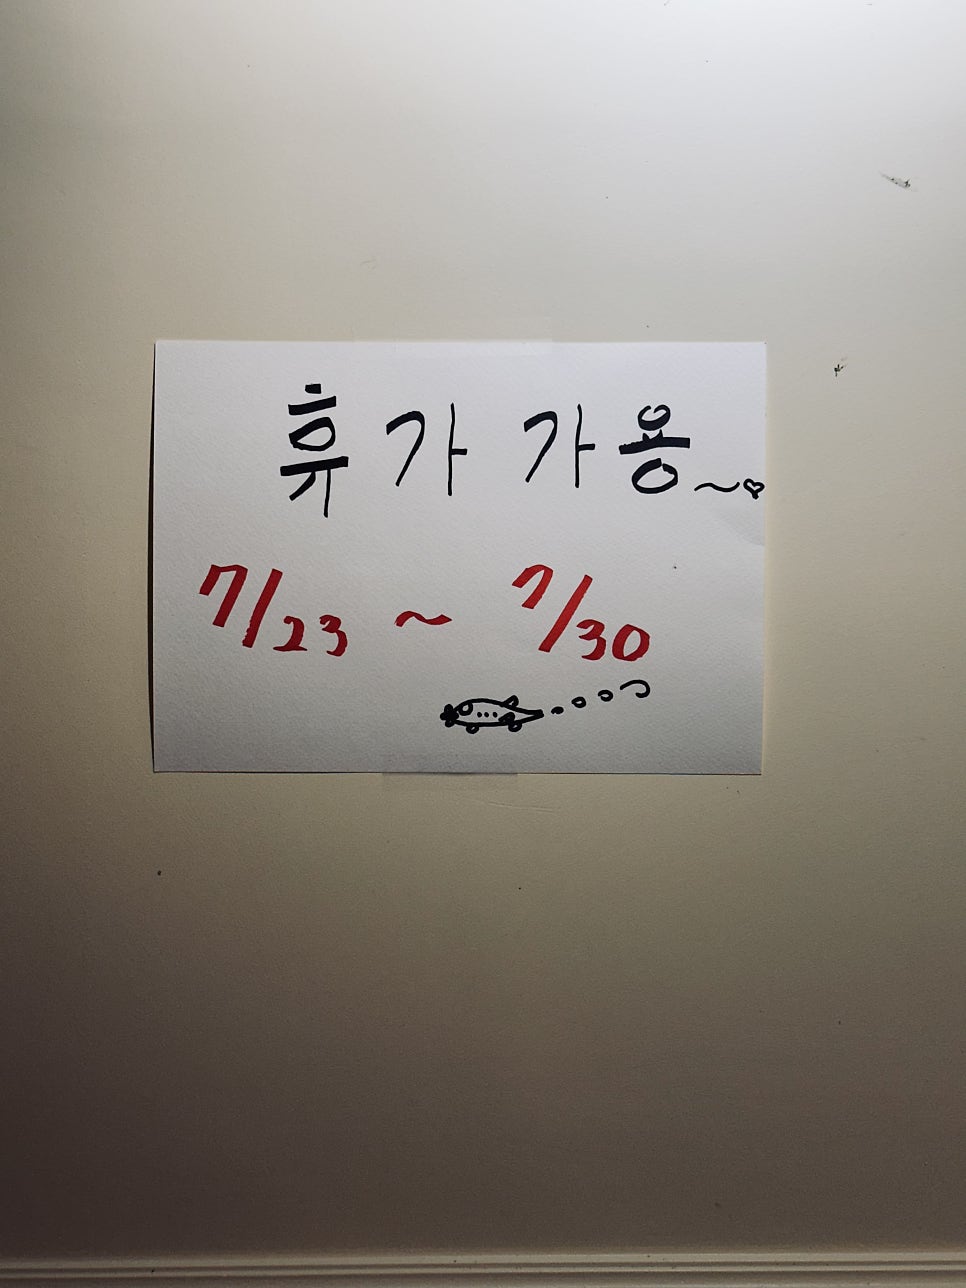 휴가 가용~♡
7/23 ~ 7/30